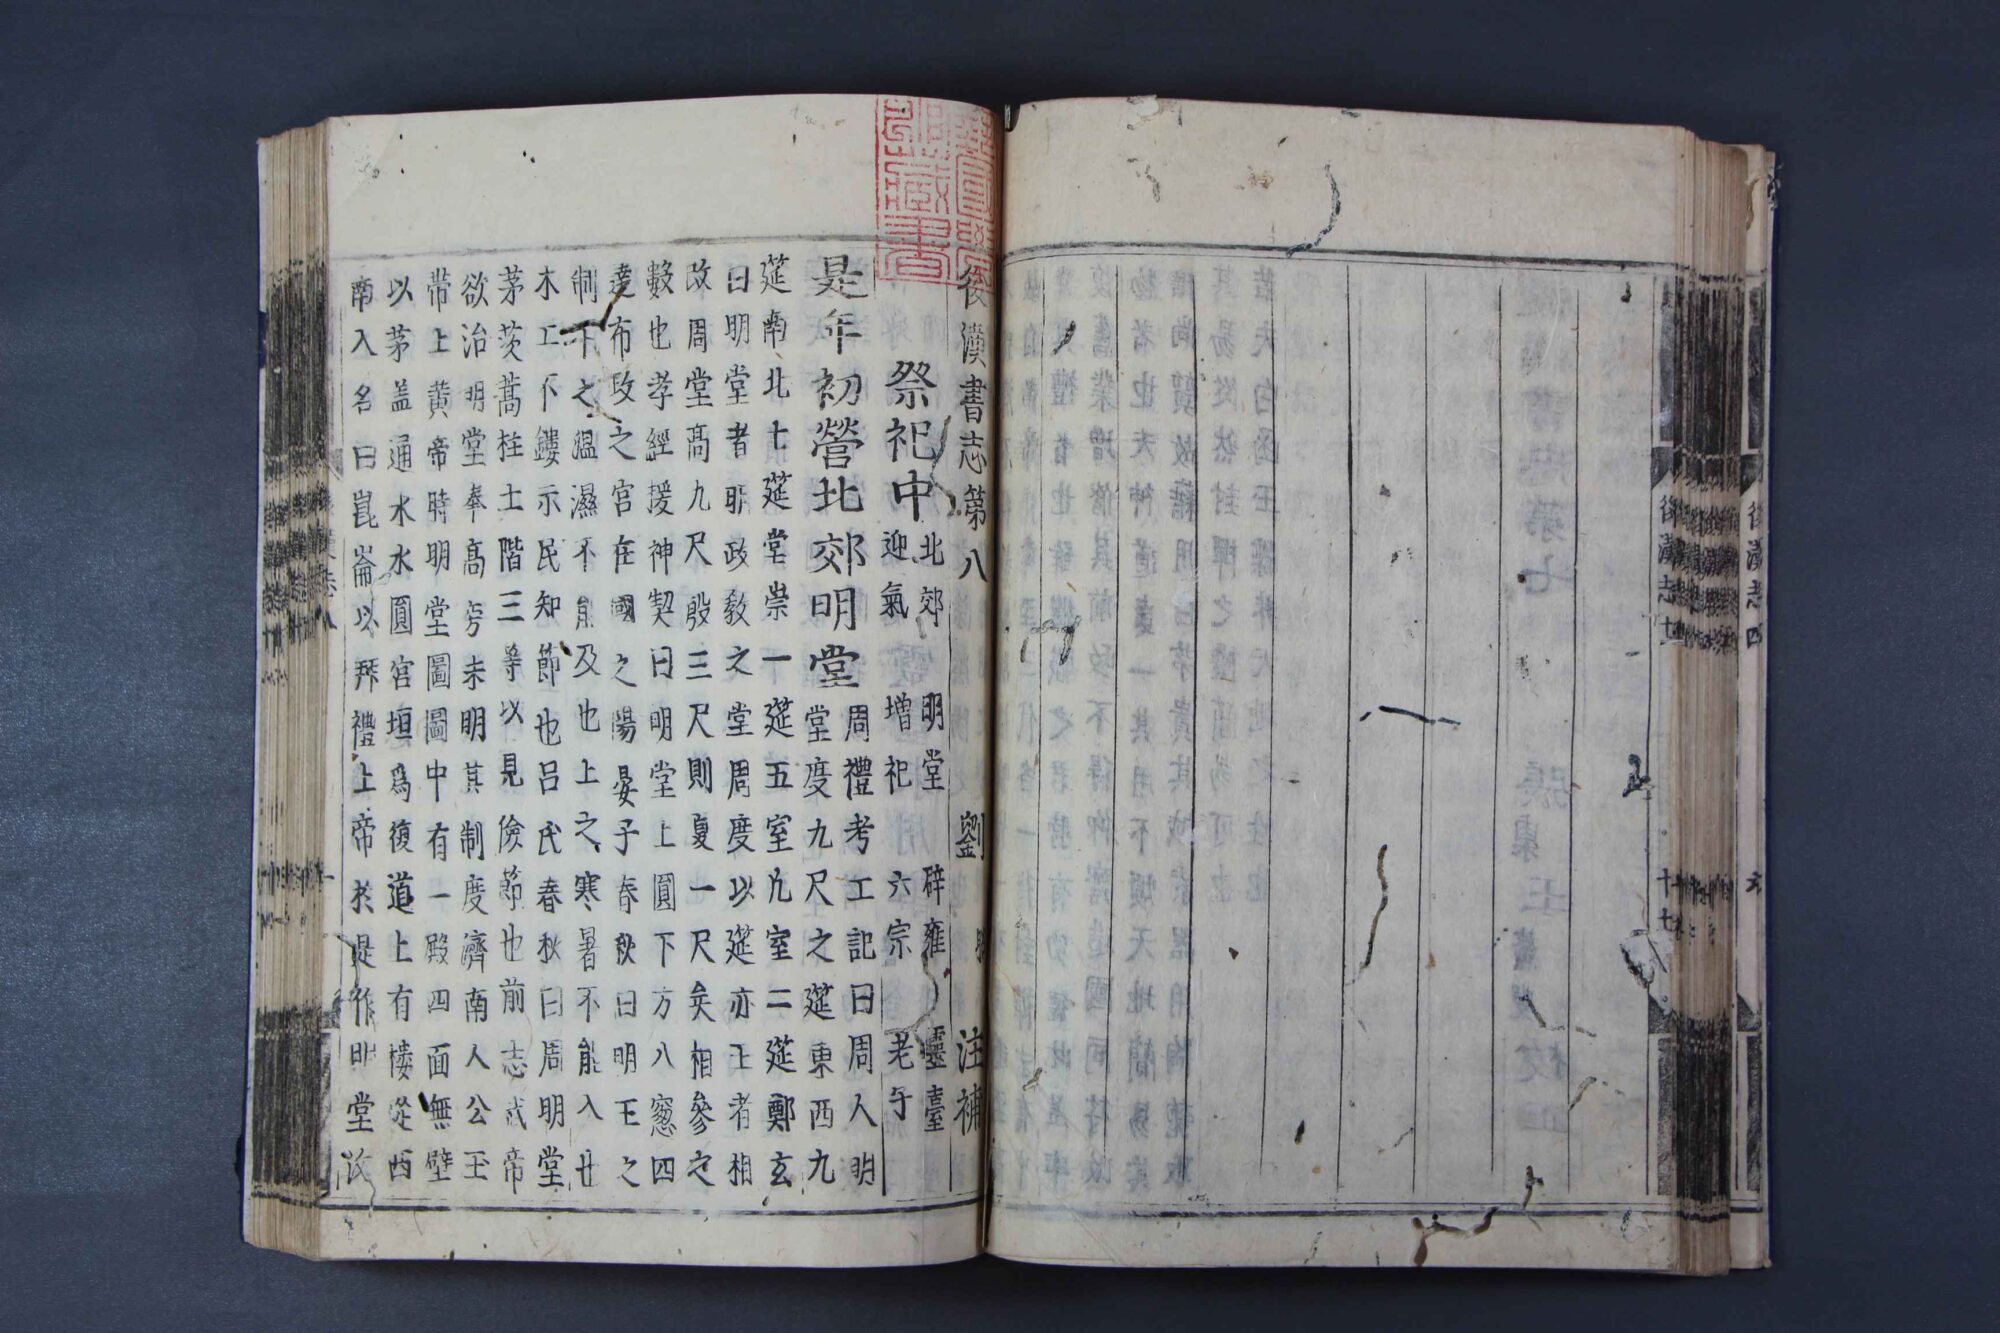 後漢志七
十七
後漢書志第八 劉 注補
祭祀中 北郊 明堂 辟雍 靈臺
迎氣 增祀 六宗 老子
是年初營北郊明堂 周禮考工記曰周人明
堂度九尺之筵東西九
筵南北七筵堂崇一筵五室凡室二筵鄭玄
曰明堂者明政敎之堂周度以筵亦王者相
改周堂高九尺殷三尺則夏一尺矣相參之
數也孝經援神契曰明堂上圓下方八窓四
達布政之宮在國之陽晏子春秋曰明王之
制下之溫濕不能及也上之寒暑不能入也
木工不鏤示民知節也呂氏春秋曰周明堂
茅茨蒿柱土階三等以見儉節也前志武帝
欲治明堂奉高旁未明其制度濟南人公玉
帶上黃帝時明堂圖圖中有一殿四面無壁
以茅盖通水水圓宮垣爲復道上有樓從西
南入名曰崑崙以拜禮上帝於是作明堂汶